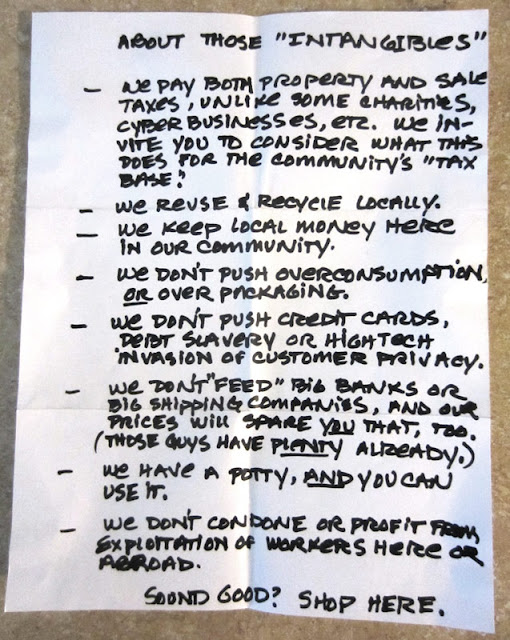 ABOUT THOSE "INTANGIBLES"
- WE PAY BOTH PROPERTY AND SALE
TAXES, UNLIKE SOME CHARITIES,
CYBER BUSINESSES, ETC. WE IN-
VITE YOU TO CONSIDER WHAT THIS
DOES FOR THE COMMUNITY'S "TAX
BASE."
- WE REUSE & RECYCLE LOCALLY.
- WE KEEP LOCAL MONEY HERE
IN OUR COMMUNITY.
- WE DON'T PUSH OVERCONSUMPTION,
OR OVER PACKAGING.
- WE DON'T PUSH CREDIT CARDS,
DEBT SLAVERY OR HIGH TECH
INVASION OF CUSTOMER PRIVACY.
- WE DON'T "FEED" BIG BANKS OR
BIG SHIPPING COMPANIES, AND OUR
PRICES WILL SPARE YOU THAT, TOO.
(THOSE GUYS HAVE PLENTY ALREADY.)
- WE HAVE A POTTY, AND YOU CAN
USE IT.
- WE DON'T CONDONE OR PROFIT FROM
EXPLOITATION OF WORKERS HERE OR
ABROAD.
SOUND GOOD? SHOP HERE.